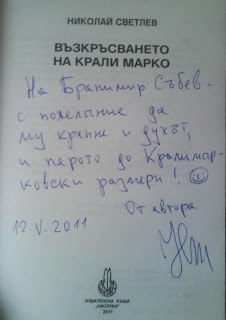 НИКОЛАЙ СВЕТЛЕВ
ВЪЗКРЪСВАНЕТО
НА КРАЛИ МАРКО
На Бранимир Събев -
с пожелание да
му крепне и духът,
и перото до Кралимар-
ковски размери!
От автора
12.V.2011
ИЗДАТЕЛСКА КЪЩА
2011